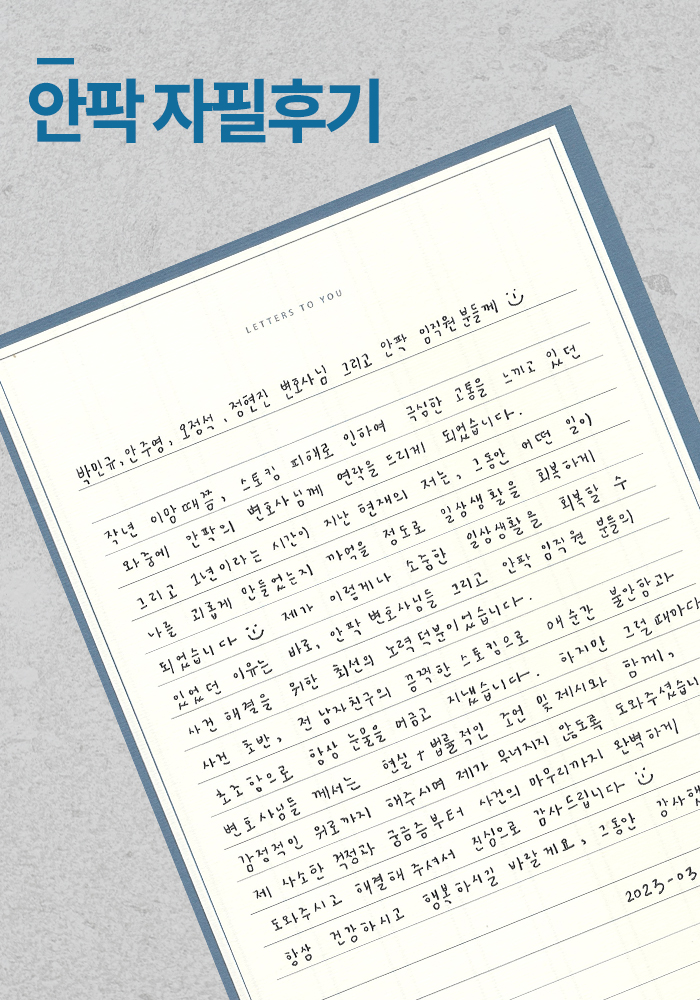 안팍 자필후기
LETTERS TO YOU
박민규, 안주영, 오정석, 정현진 변호사님 그리고 안팍 임직원분들께
작년 이맘때쯤, 스토킹 피해로 인하여 극심한 고통을 느끼고 있던
와중에 안팍의 변호사님께 연락을 드리게 되었습니다.
그리고 1년이라는 시간이 지난 현재의 저는, 그동안 어떤 일이
나를 괴롭게 만들었는지 까먹을 정도로 일상생활을 회복하게
되었습니다 제가 이렇게나 소중한 일상생활을 회복할 수
있었던 이유는 바로, 안팍 변호사님들 그리고 안팍 임직원 분들의
사건 해결을 위한 최선의 노력 덕분이었습니다.
사건 초반, 전 남자친구의 끔찍한 스토킹으로 매순간 불안함과
초조함으로 항상 눈물을 머금고 지냈습니다. 하지만 그럴 때마다
변호사님들 께서는 현실+법률적인 조언 및 제시와 함께,
감정적인 위로까지 해주시며 제가 무너지지 않도록 도와주셨습니
제 사소한 걱정과 궁금증부터 사건의 마무리까지 완벽하게
도와주시고 해결해 주셔서 진심으로 감사드립니다
항상 건강하시고 행복하시길 바랄게요, 그동안 감사해
2023-03